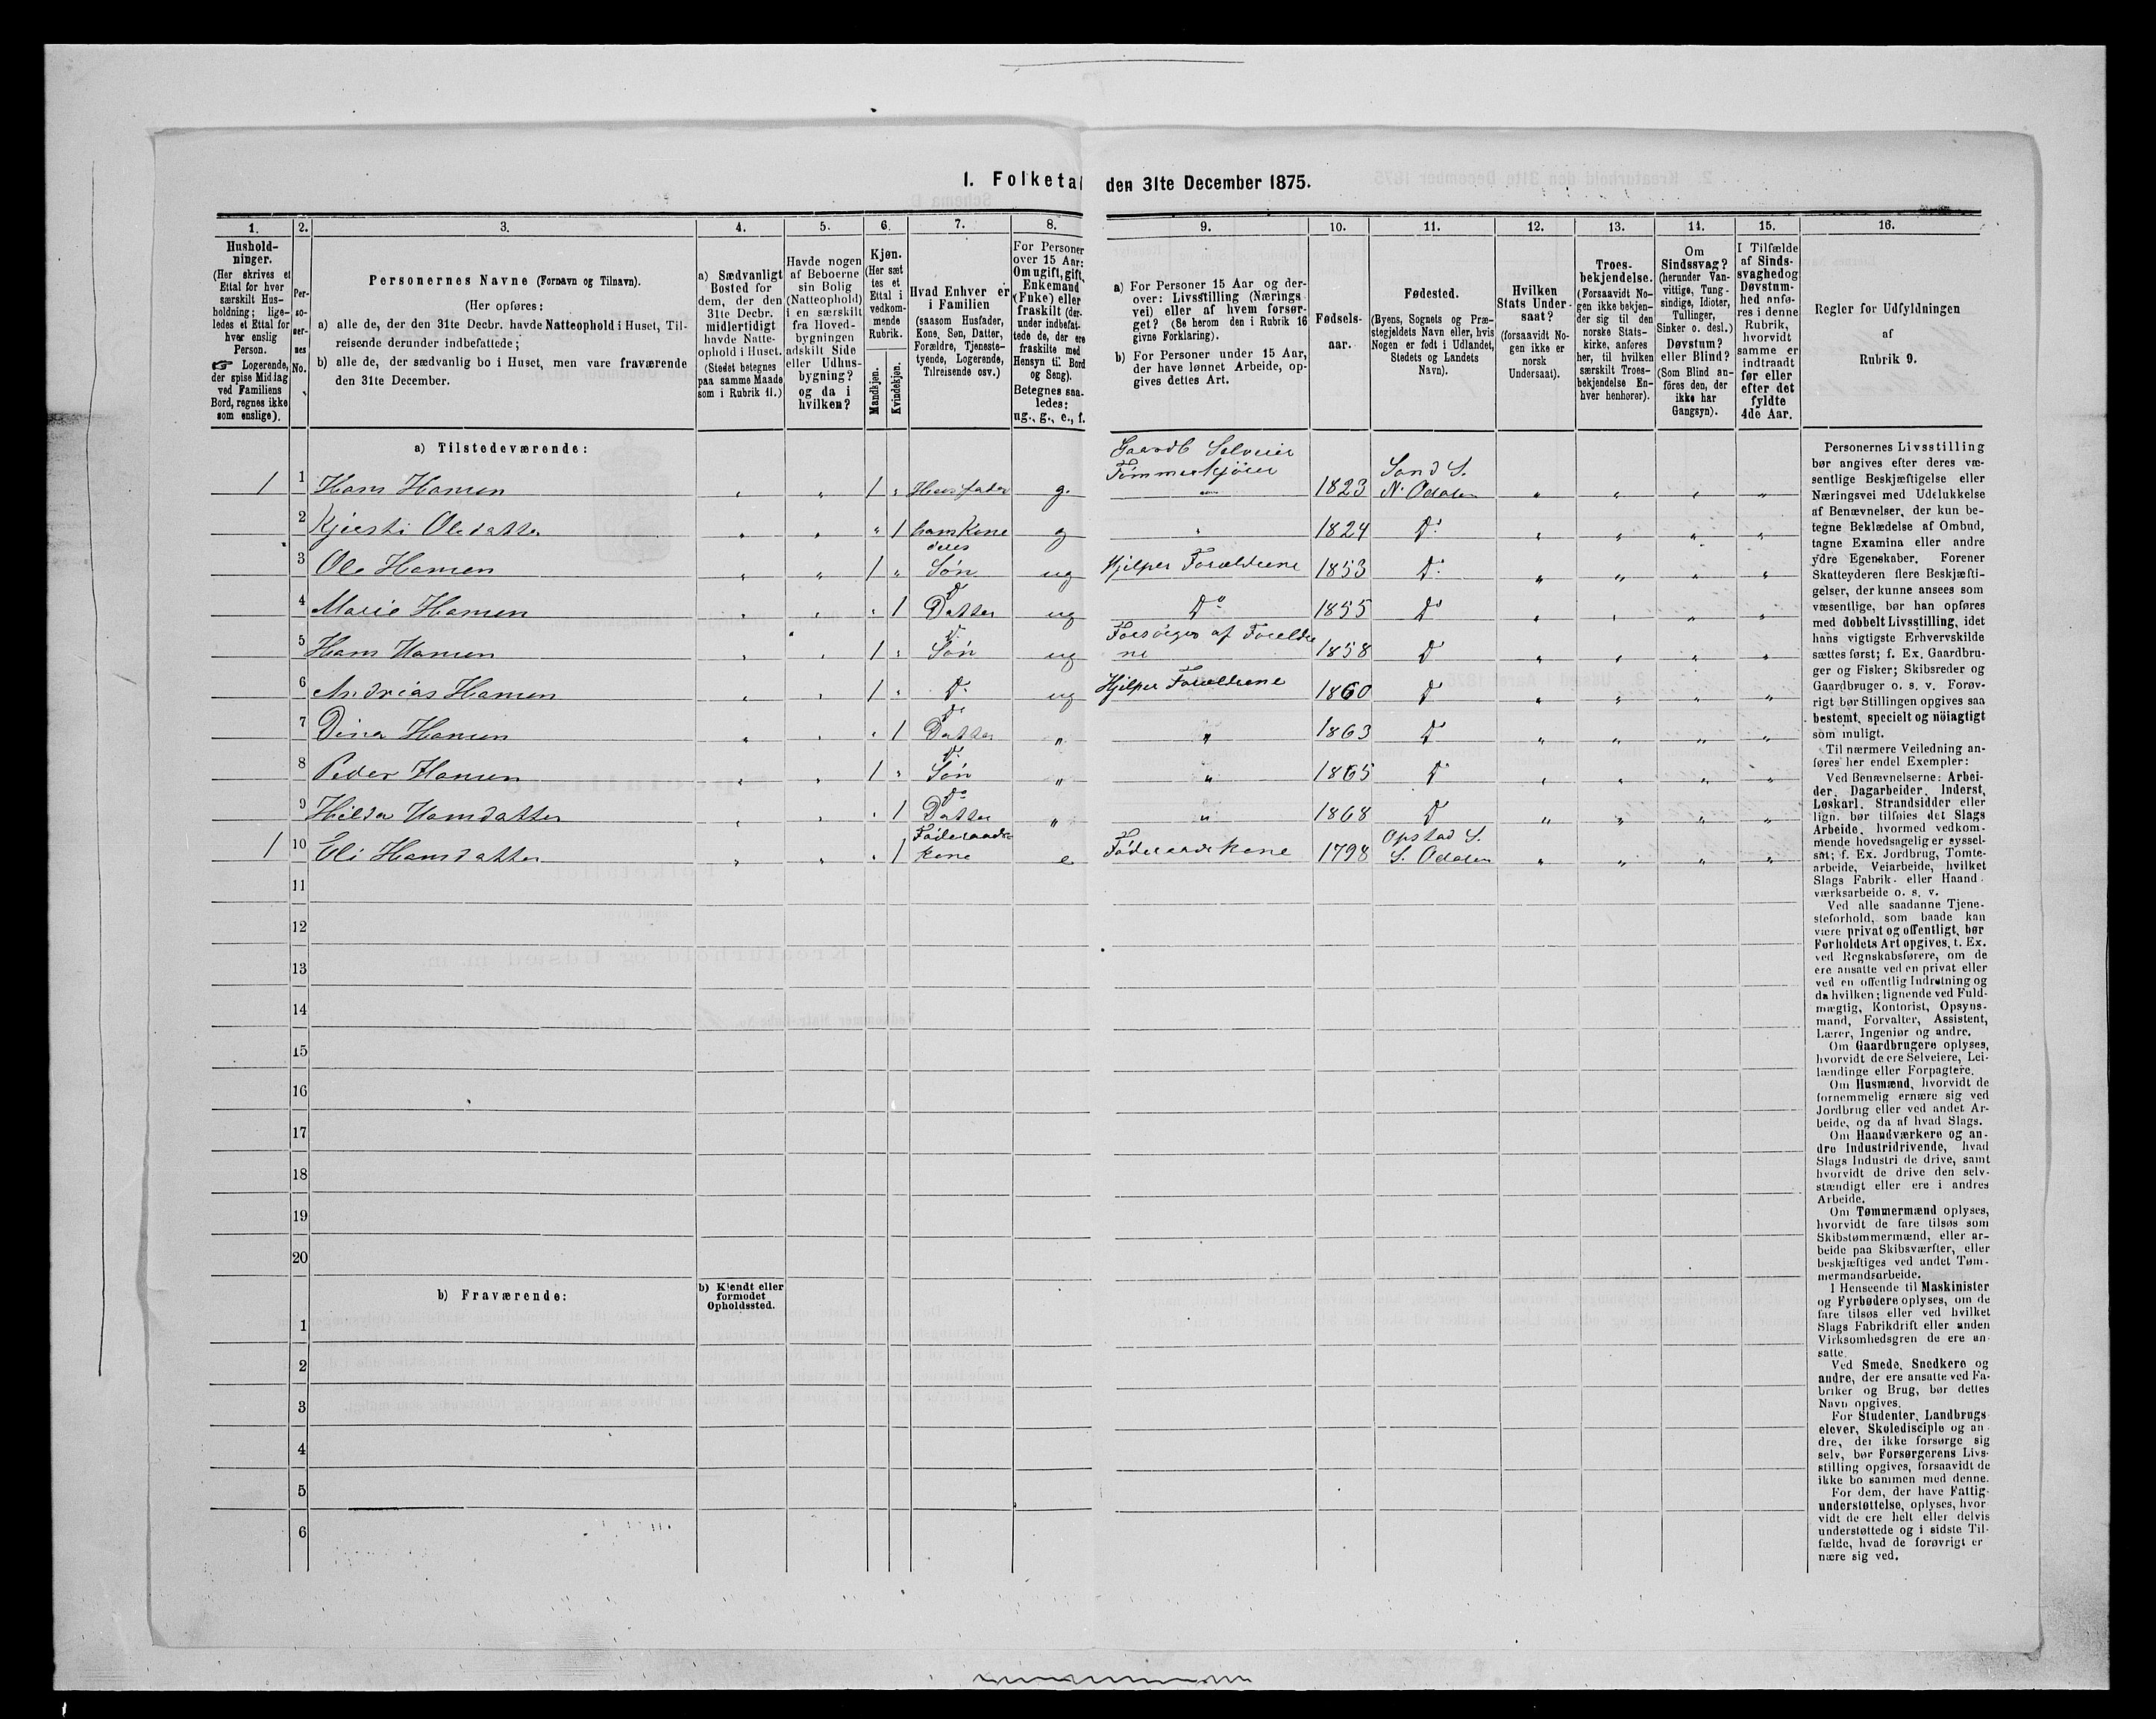 I. Folketal den 31te December 1875.
1. 2. 3. 4. 5. 6. 7. 8. 9. 10. 11. 12. 13. 14. 15. 16.
Hushold-
ninger.
(Her skrives et
Ettal for hver
særskilt Hus-
holdning; lige-
ledes et Ettal for
hver enslig
Person.
☞ Logerende,
der spise Middag
ved Familiens
Bord, regnes ikke
som enslige).
Per-
so-
ner-
nes
No.
Personernes Navne (Fornavn og Tilnavn).
(Her opføres:
a) alle de, der den 31te Decbr. havde Natteophold i Huset, Til-
reisende derunder indbefattede;
b) alle de, der sædvanlig bo i Huset, men vare fraværende
den 31te December.
a) Sædvanligt
Bosted for
dem, der den
31te Decbr.
midlertidigt
havde Natte-
ophold i Huset.
(Stedet betegnes
paa samme Maade
som i Rubrik 11.)
Havde nogen
af Beboerne
sin Bolig
(Natteophold)
i en særskilt
fra Hoved-
bygningen
adskilt Side
eller Udhus-
bygning?
og da i
hvilken?
Kjøn.
(Her sæt
tes et
Ettal i
vedkom-
mende
Rubrik.
Mandkjøn.
Kvindekjøn.
Hvad Enhver er
i Familien
(saasom Husfader,
Kone, Søn, Datter,
Forældre, Tjeneste-
tyende, Logerende,
Tilreisende osv.)
For Personer
over 15 Aar:
Om ugift, gift,
Enkemand
(Enke) eller
fraskilt (der-
under indbefat-
tede de, der ere
fraskilte med
Hensyn til Bord
og Seng).
Betegnes saa-
ledes:
ug., g., e., f.
a) For Personer 15 Aar og der-
over: Livsstilling (Nærings
vei) eller af hvem forsør-
get? (Se herom den i Rubrik 16
givne Forklaring).
b) For Personer under 15 Aar,
der have lønnet Arbeide, op-
gives dettes Art.
Fødsels-
aar.
Fødested.
(Byens, Sognets og Præ-
stegjeldets Navn eller, hvis
Nogen er født i Udlandet,
Stedets og Landets
Navn).
Hvilken
Stats Under-
saat?
(forsaavidt No-
gen ikke er
norsk
Undersaat).
Troes-
bekjendelse.
(Forsaavidt No-
gen ikke bekjen-
der sig til den
norske Stats-
kirke, anføres
her, til hvilken
særskilt Troes-
bekjendelse En-
hver henhører).
Om
Sindssvag?
(herunder Van-
vittige, Tung-
sindige, Idioter,
Tullinger,
Sinker o. desl.)
Døvstum?
eller Blind?
(Som Blind an-
føres den, der
ikke har
Gangsyn).
I Tilfælde
af Sinds-
svaghed og
Døvstum-
hed anfø-
res i denne
Rubrik,
hvorvidt
samme er
indtraadt
før eller
efter det
fyldte
4de Aar.
Regler for Udfyldningen
af
Rubrik 9.
a) Tilstedeværende:
Gaardb Selveier
Tømmerkjører Sand S.
1 1 Hans Hansen " " 1 " Husfader g. 1823 N. Odalen " " " "
2 Kjersti Olsdatter " " " 1 hans Kone g " 1824 Do " " " "
deres
3 Ole Hansen " " 1 " Søn ug Hjelper Forældrene 1853 Do " " " "
Do
4 Marie Hansen " " " 1 Datter ug Do 1855 Do " " " "
Do Forsørges af Foreldre
5 Hans Hansen " " 1 " Søn ug ne 1858 D " " " "
6 Andreas Hansen " " 1 " Do ug Hjelper Forældrene 1860 D " " " "
Do
7 Dina Hansen " " " 1 Datter " " 1863 D " " " "
Do
8 Peder Hansen " " 1 " Søn " " 1865 D " " " "
Do
9 Hilda Hansdatter " " " 1 Datter " " 1868 D " " " "
Føderaads- Opstad S.
1 10 Eli Hansdatter " " " 1 Kone e Føderaadskone 1798 S. Odalen " " " "
11
12
13
14
15
16
17
18
19
20
b) Fraværende:
b) Kjendt eller
formodet
Opholdssted.
1
2
3
4
5
6
Personernes Livsstilling
bør angives efter deres væ-
sentlige Beskjæftigelse eller
Næringsvei med Udelukkelse
af Benævnelser, der kun be-
tegne Beklædelse af Ombud,
tagne Examina eller andre
ydre Egenskaber. Forener
Skatteyderen flere Beskjæfti-
gelser, der kunne ansees som
væsentlige, bør han opføres
med dobbelt Livsstilling, idet
hans vigtigste Erhvervskilde
sættes først; f. Ex. Gaardbru-
ger og Fisker; Skibsreder og
Gaardbruger o. s. v. Forøv-
rigt bør Stillingen opgives saa
bestemt, specielt og nöiagtigt
som muligt.
Til nærmere Veiledning an-
føres her endel Exempler:
Ved Benævnelserne: Arbei-
der, Dagarbeider, Inderst,
Løskarl, Strandsidder eller
lign. bør tilføies det Slags
Arbeide, hvormed vedkom-
mende hovedsagelig er syssel-
sat; f. Ex. Jordbrug, Tomte-
arbeide, Veiarbeide, hvilket
Slags Fabrik- eller Haand-
værksarbeide o. s. v.
Ved alle saadanne Tjene-
steforhold, som baade kan
være privat og offentligt, bør
Forholdets Art opgives, t. Ex.
ved Regnskabsførere, om de
ere ansatte ved en privat eller
ved en offentlig Indretning og
da hvilken; lignende ved Fuld-
mægtig, Kontorist, Opsyns-
mand, Forvalter, Assistent,
Lærer, Ingeniør og andre.
Om Gaardbrugere oplyses,
hvorvidt de ere Selveiere, Lei-
lændinge eller Forpagtere.
Om Husmænd, hvorvidt de
fornemmelig ernære sig ved
Jordbrug eller ved andet Ar-
beide, og da af hvad Slags.
Om Haandværkere og an-
dre Industridrivende, hvad
Slags Industri de drive, samt
hvorvidt de drive den selv-
stændigt eller ere i andres
Arbeide.
Om Tømmermænd oplyses,
hvorvidt de fare tilsøs som
Skibstømmermænd, eller ar-
beide paa Skibsværfter, eller
beskjæftiges ved andet Tøm-
mermandsarbeide.
I Henseende til Maskinister
og Fyrbødere oplyses, om de
fare tilsøs eller ved hvilket
Slags Fabrikdrift eller anden
Virksomhedsgren de ere an-
satte.
Ved Smede, Snedkere og
andre, der ere ansatte ved Fa-
briker og Brug, bør dettes
Navn opgives.
For Studenter, Landbrugs
elever, Skoledisciple og an-
dre, der ikke forsørge sig
selv, bør Forsørgerens Livs-
stilling opgives, forsaavidt de
ikke bo sammen med denne.
For dem, der have Fattig-
understøttelse, oplyses, hvor
vidt de ere helt eller delvis
understøttede og i sidste Til-
fælde, hvad de forøvrigt er
nære sig ved.